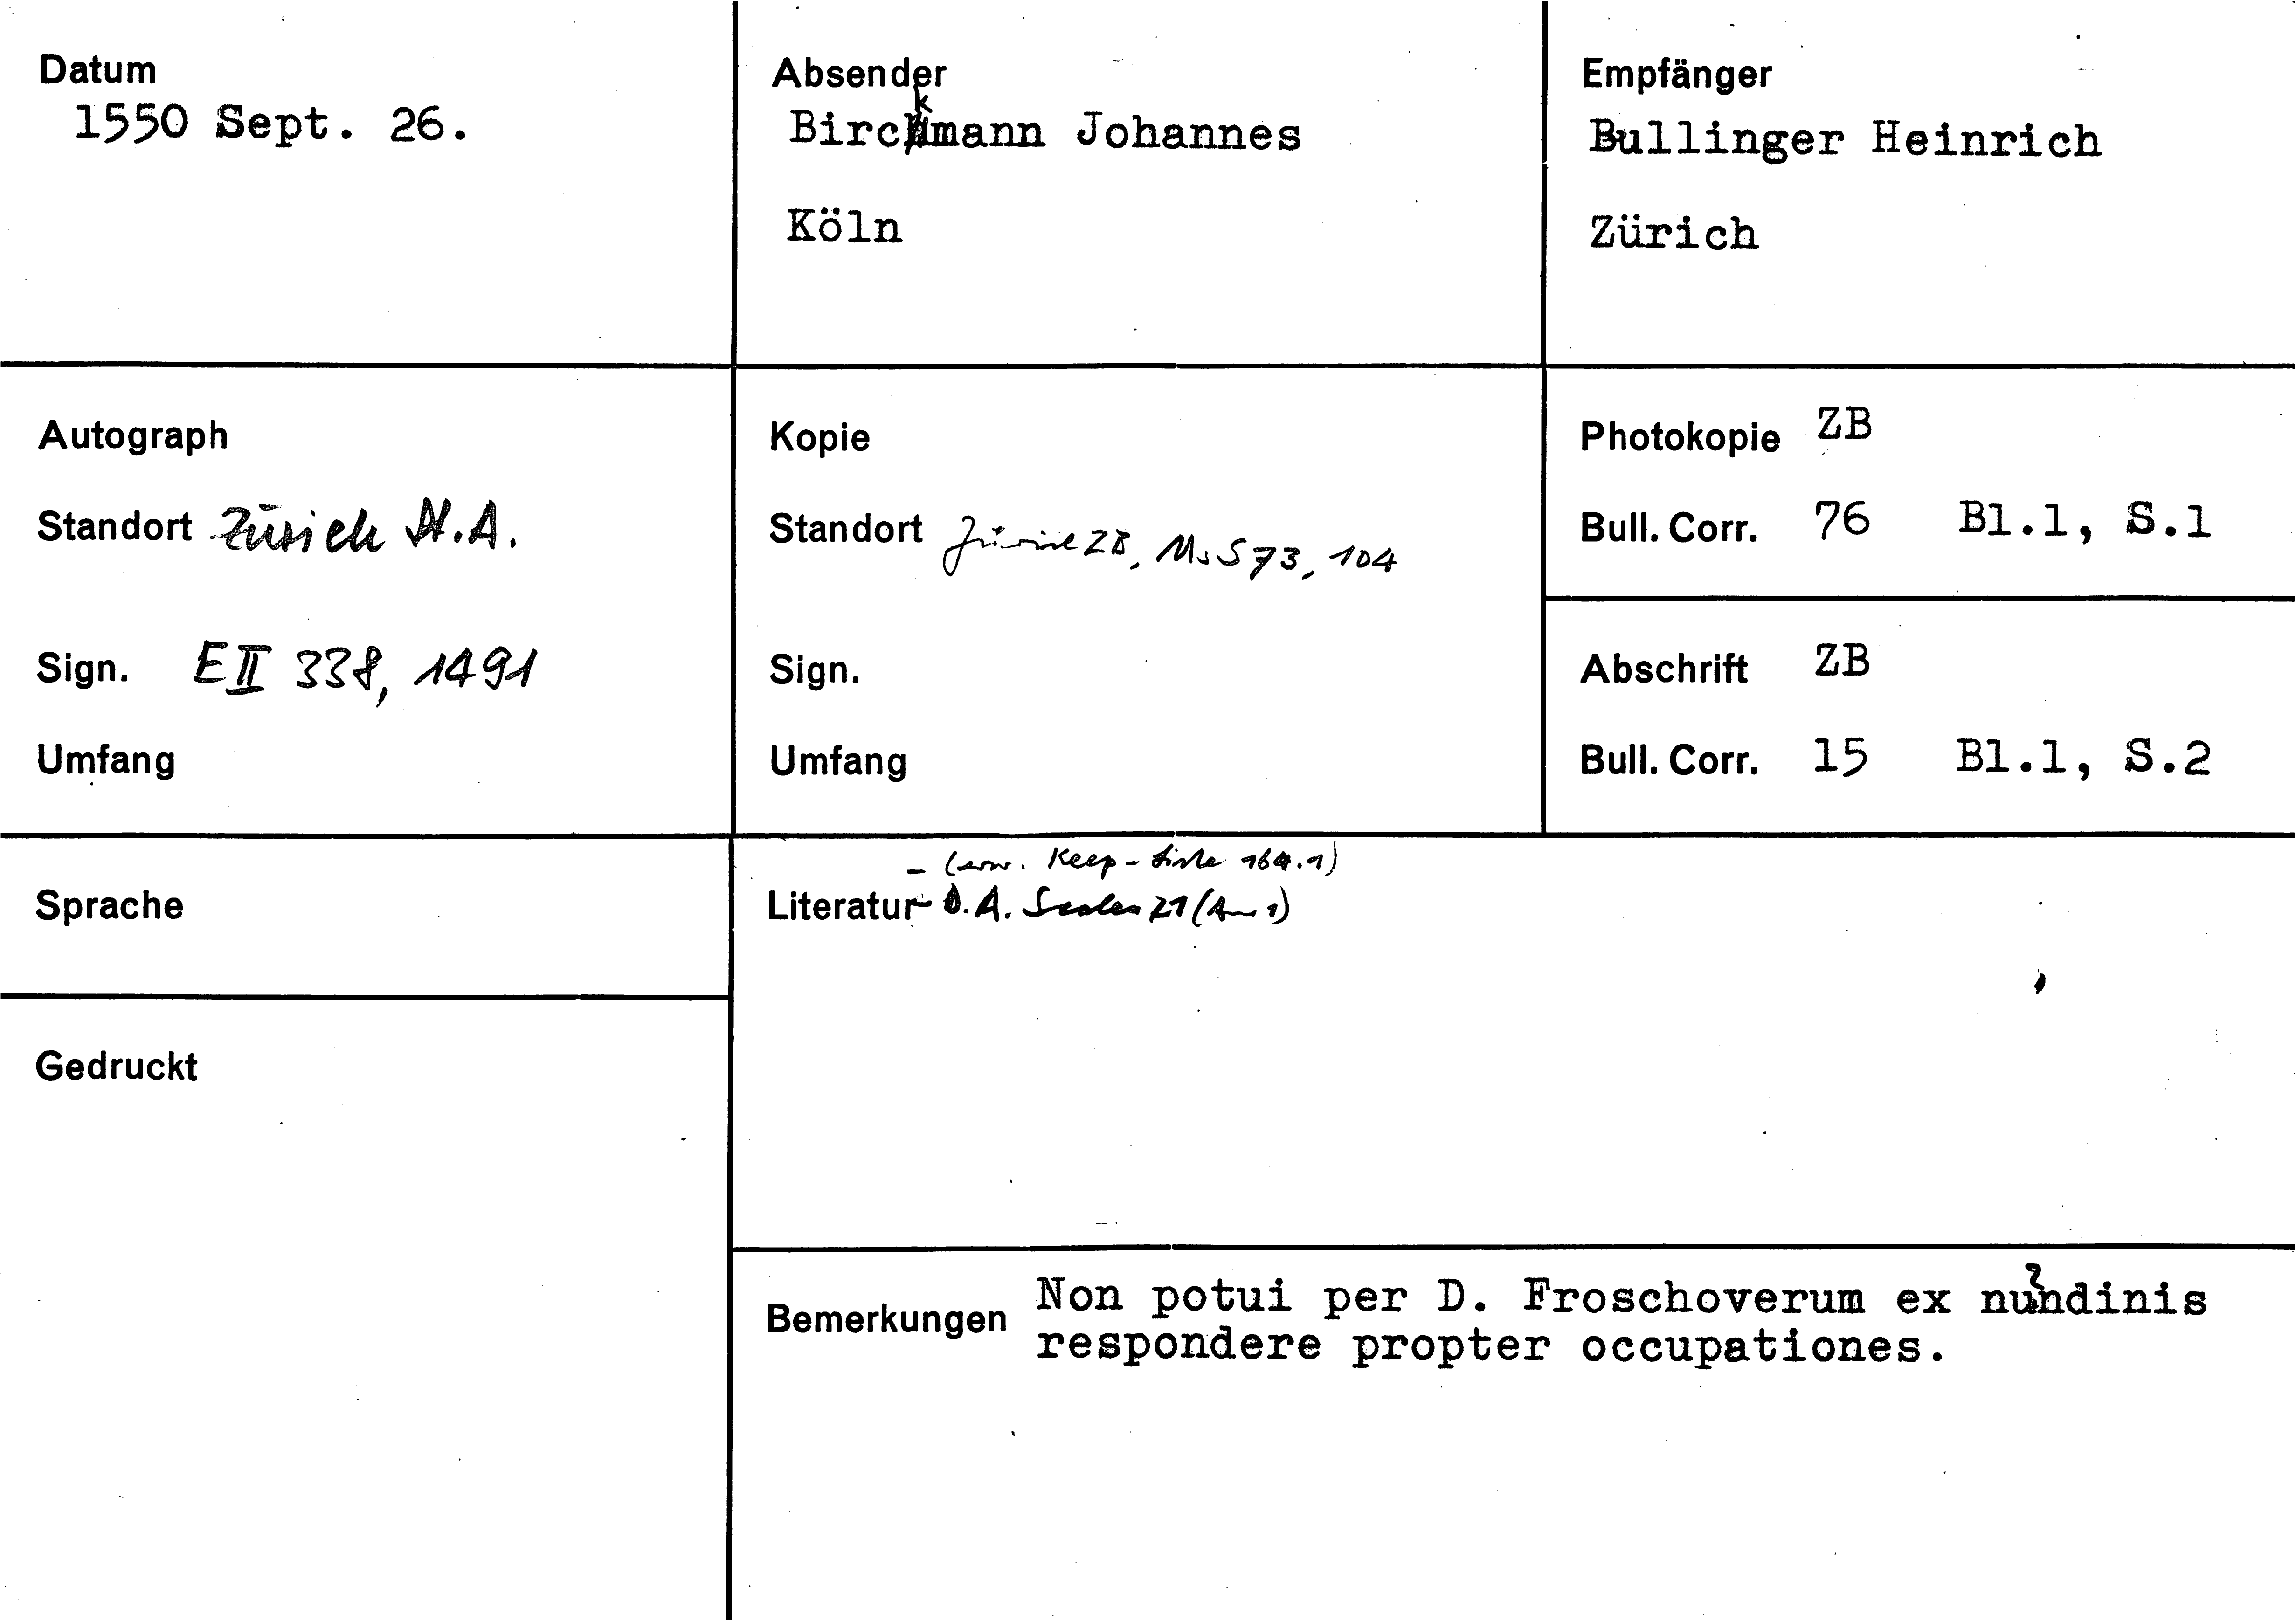 Datum
1550 Sept. 26.
Absender
Birckmann Johannes
Köln
Empfänger
Bullinger Heinrich
Zürich
Autograph
Standort Zürich St.A.
Sign. E II 338, 1491
Umfang
Kopie
Standort Zürich ZB, Ms S 73, 104
Sign.
Umfang
Photokopie ZB
Bull. Corr. 76 Bl.1, S.1
Abschrift ZB
Bull. Corr. 15 Bl.1, S.2
Sprache
Gedruckt
- Keep-Liste
Literatur
Bemerkungen Non potui per D. Froschoverum ex nundinis
respondere propter occupationes.